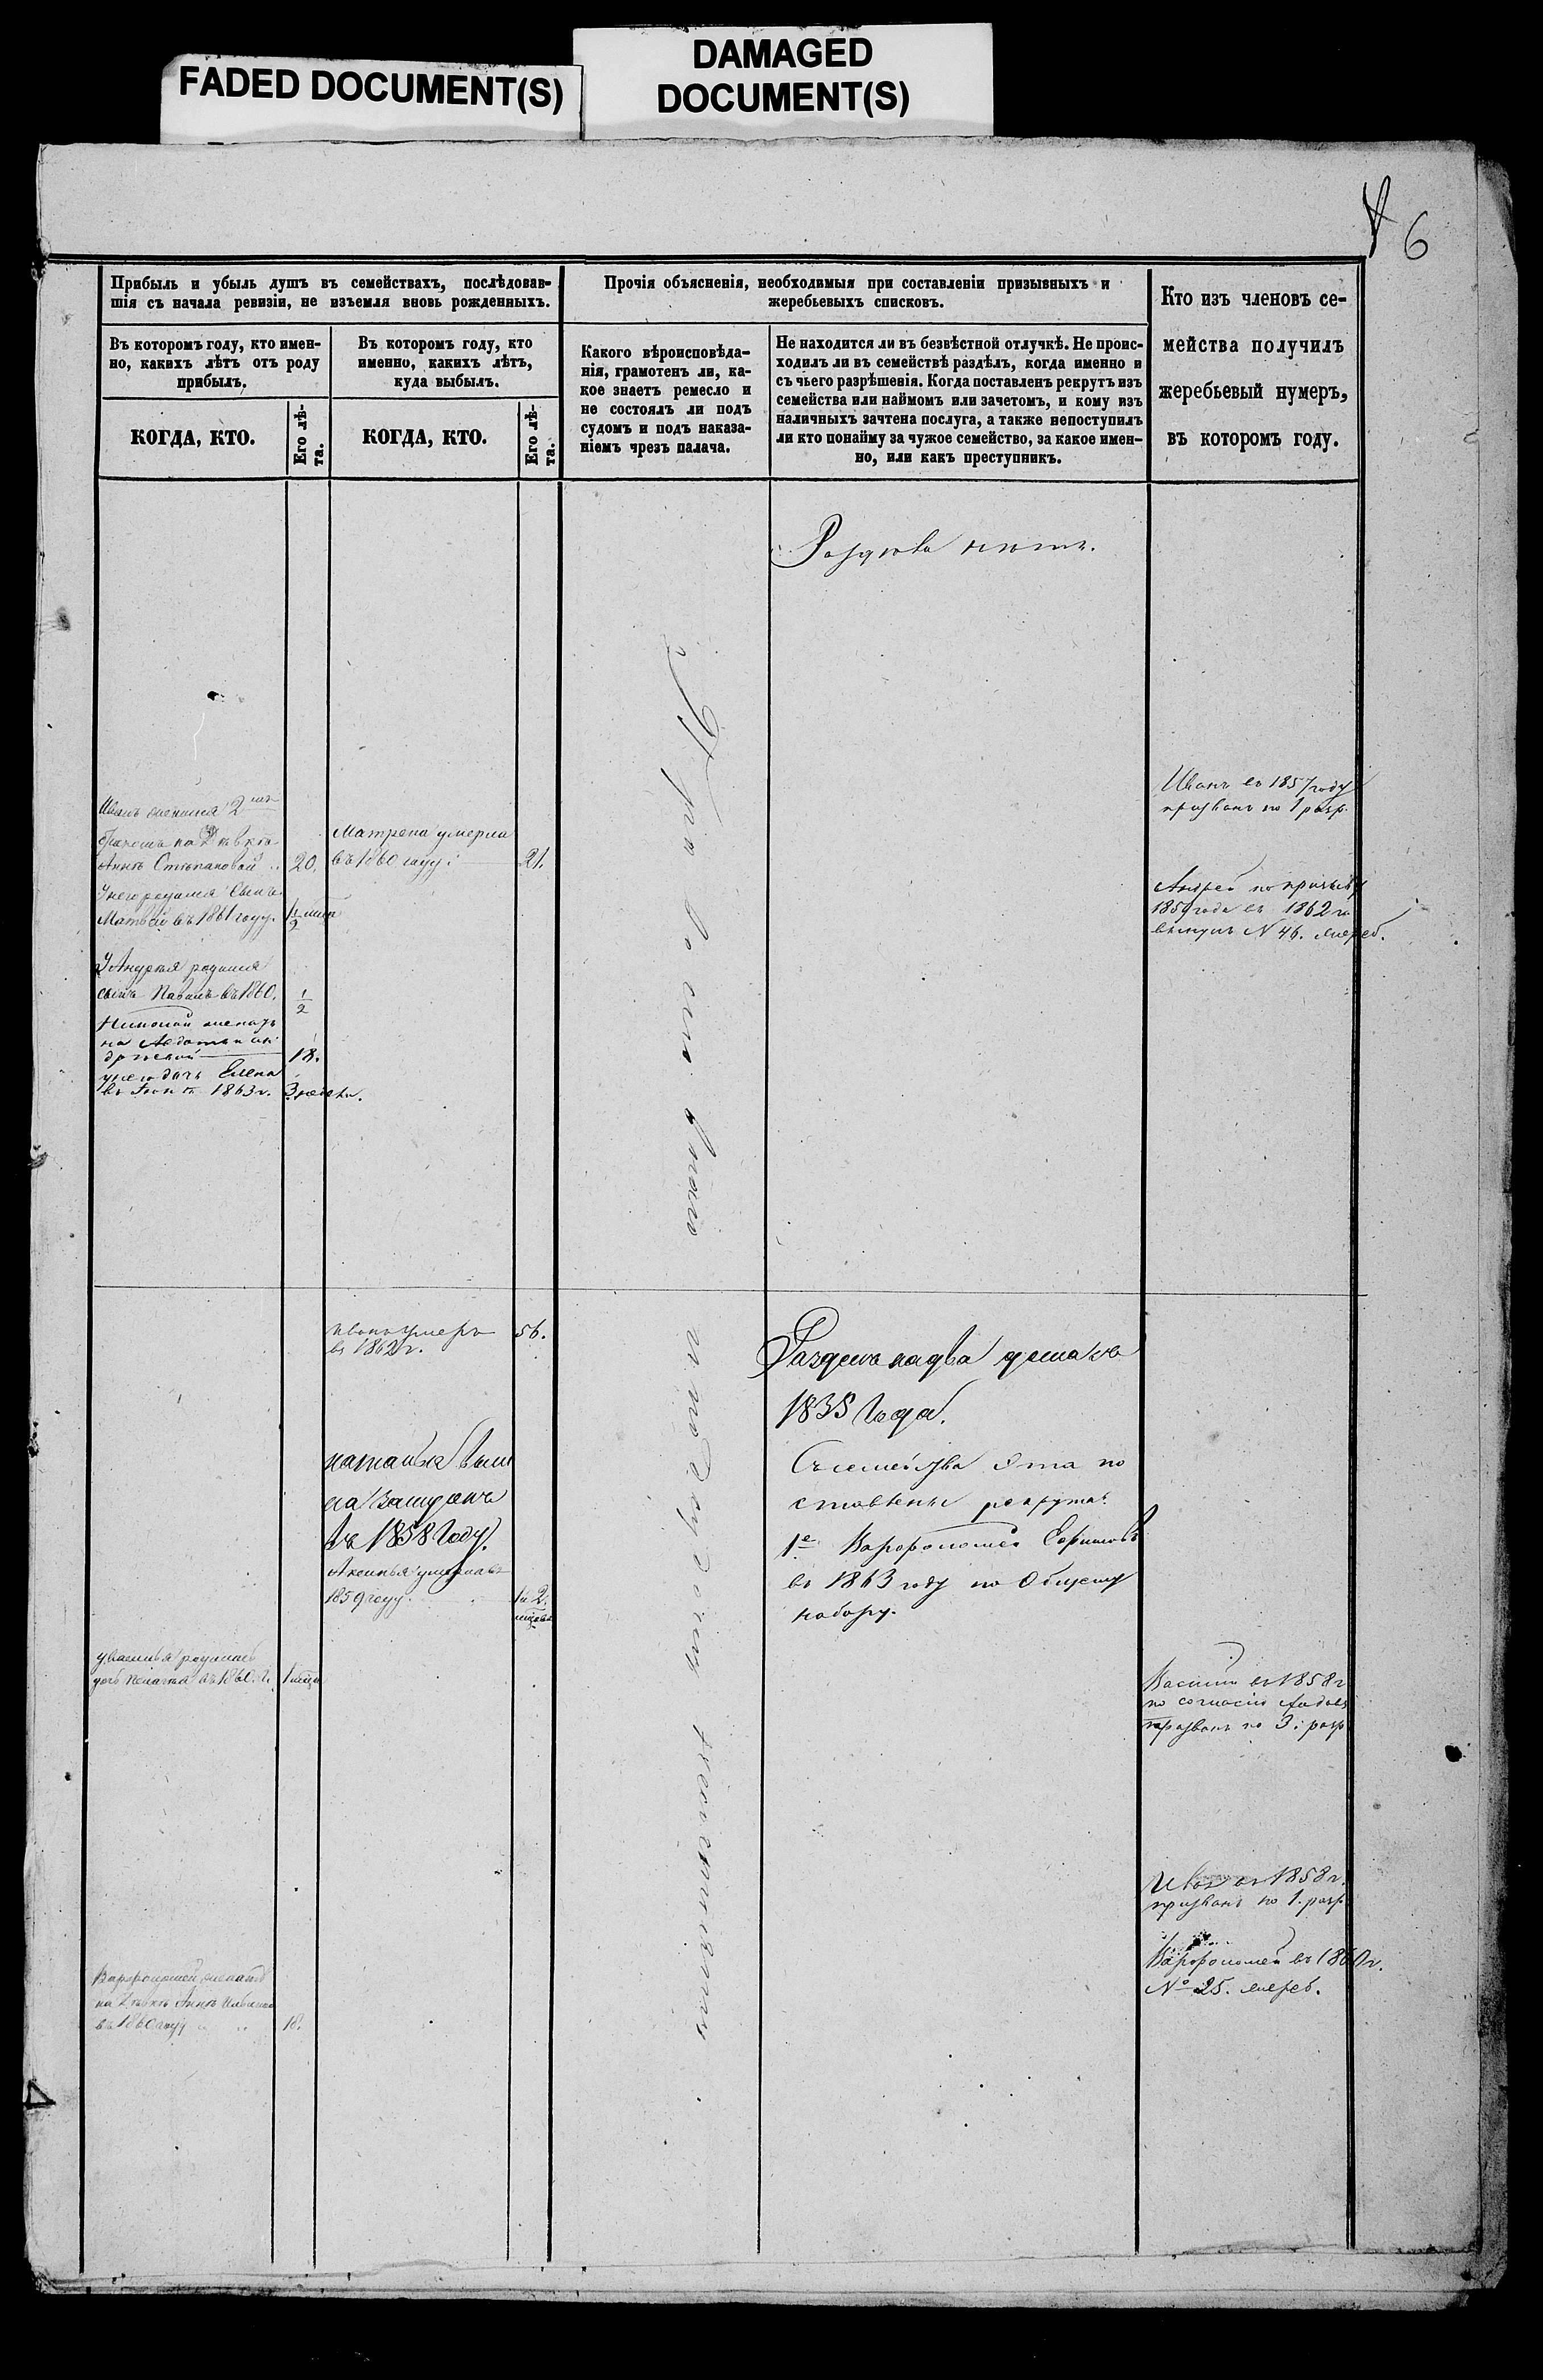 FADED DOCUMENT(S)
DAMAGED
DOCUMENT(S)
6
Прибыль и убыль душъ въ семействахъ, послѣдовав-
шія съ начала ревизіи, не изъемля вновь рожденныхъ.
Въ которомъ году, кто имен-
но, какихъ лѣтъ отъ роду
прибылъ.
КОГДА, КТО.
Его лѣ-
та.
Въ которомъ году, кто
именно, какихъ лѣтъ,
куда выбылъ.
КОГДА, КТО.
Его лѣ-
та.
Прочія объясненія, необходимыя при составленіи призывныхъ и
жеребьевыхъ списковъ.
Какого вѣроисповѣда-
нія, грамотенъ ли, ка-
кое знаетъ ремесло и
не состоялъ ли подъ
судомъ и подъ наказа-
ніемъ чрезъ палача.
Не находится ли въ безвѣстной отлучкѣ. Не проис-
ходилъ ли въ семействѣ раздѣлъ, когда именно и
съ чьего разрѣшенія. Когда поставленъ рекрутъ изъ
семейства или наймомъ или зачетомъ, и кому изъ
наличныхъ зачтена послуга, а также непоступилъ
ли кто понайму за чужое семейство, за какое имен-
но, или какъ преступникъ.
Кто изъ членовъ се-
мейства получилъ
жеребьевый нумеръ,
въ которомъ году.
Раздѣла нѣтъ.
Иванъ женился 2мъ
бракомъ на дѣвкѣ
Аннѣ Степановой 20.
У него родился Сынъ
Матвѣй въ 1861 году. 1/2
У Андрея родился
сынъ Павелъ въ 1860. 1/2
женатъ
на Авдотьѣ Ан-
дреевой 18.
у него дочь Елена
въ 1863 г. 3 недѣли.
Матрена умерла
въ 1860 году. 21.
Иванъ въ 1857 году
призванъ по 1 разр.
Андрей по призыву
1859 года въ 1862 го
вынулъ N 46. жереб.
умеръ
въ 1862 г. 56.
Наталья вышла
за мужъ
въ 1858 Году.
Аксинья умерла въ
1859 году.
Раздѣлъ на два дома съ
1838 Года.
Съ семейства Эта по
ставлены рекрута
1е Варфоломей Ефимовъ
въ 1863 году по Общему
набору.
у Василья родилась
дочь Пелагея въ 1860 г.
Василій въ 1858 г
по согласію
призванъ по 3. разр.
Иванъ въ 1858 г.
призванъ по 1. разр.
Варфоломей въ 1860 г.
№ 25. жереб.
Варфоломей женатъ
на дѣвкѣ Аннѣ
въ 1860 году 18.